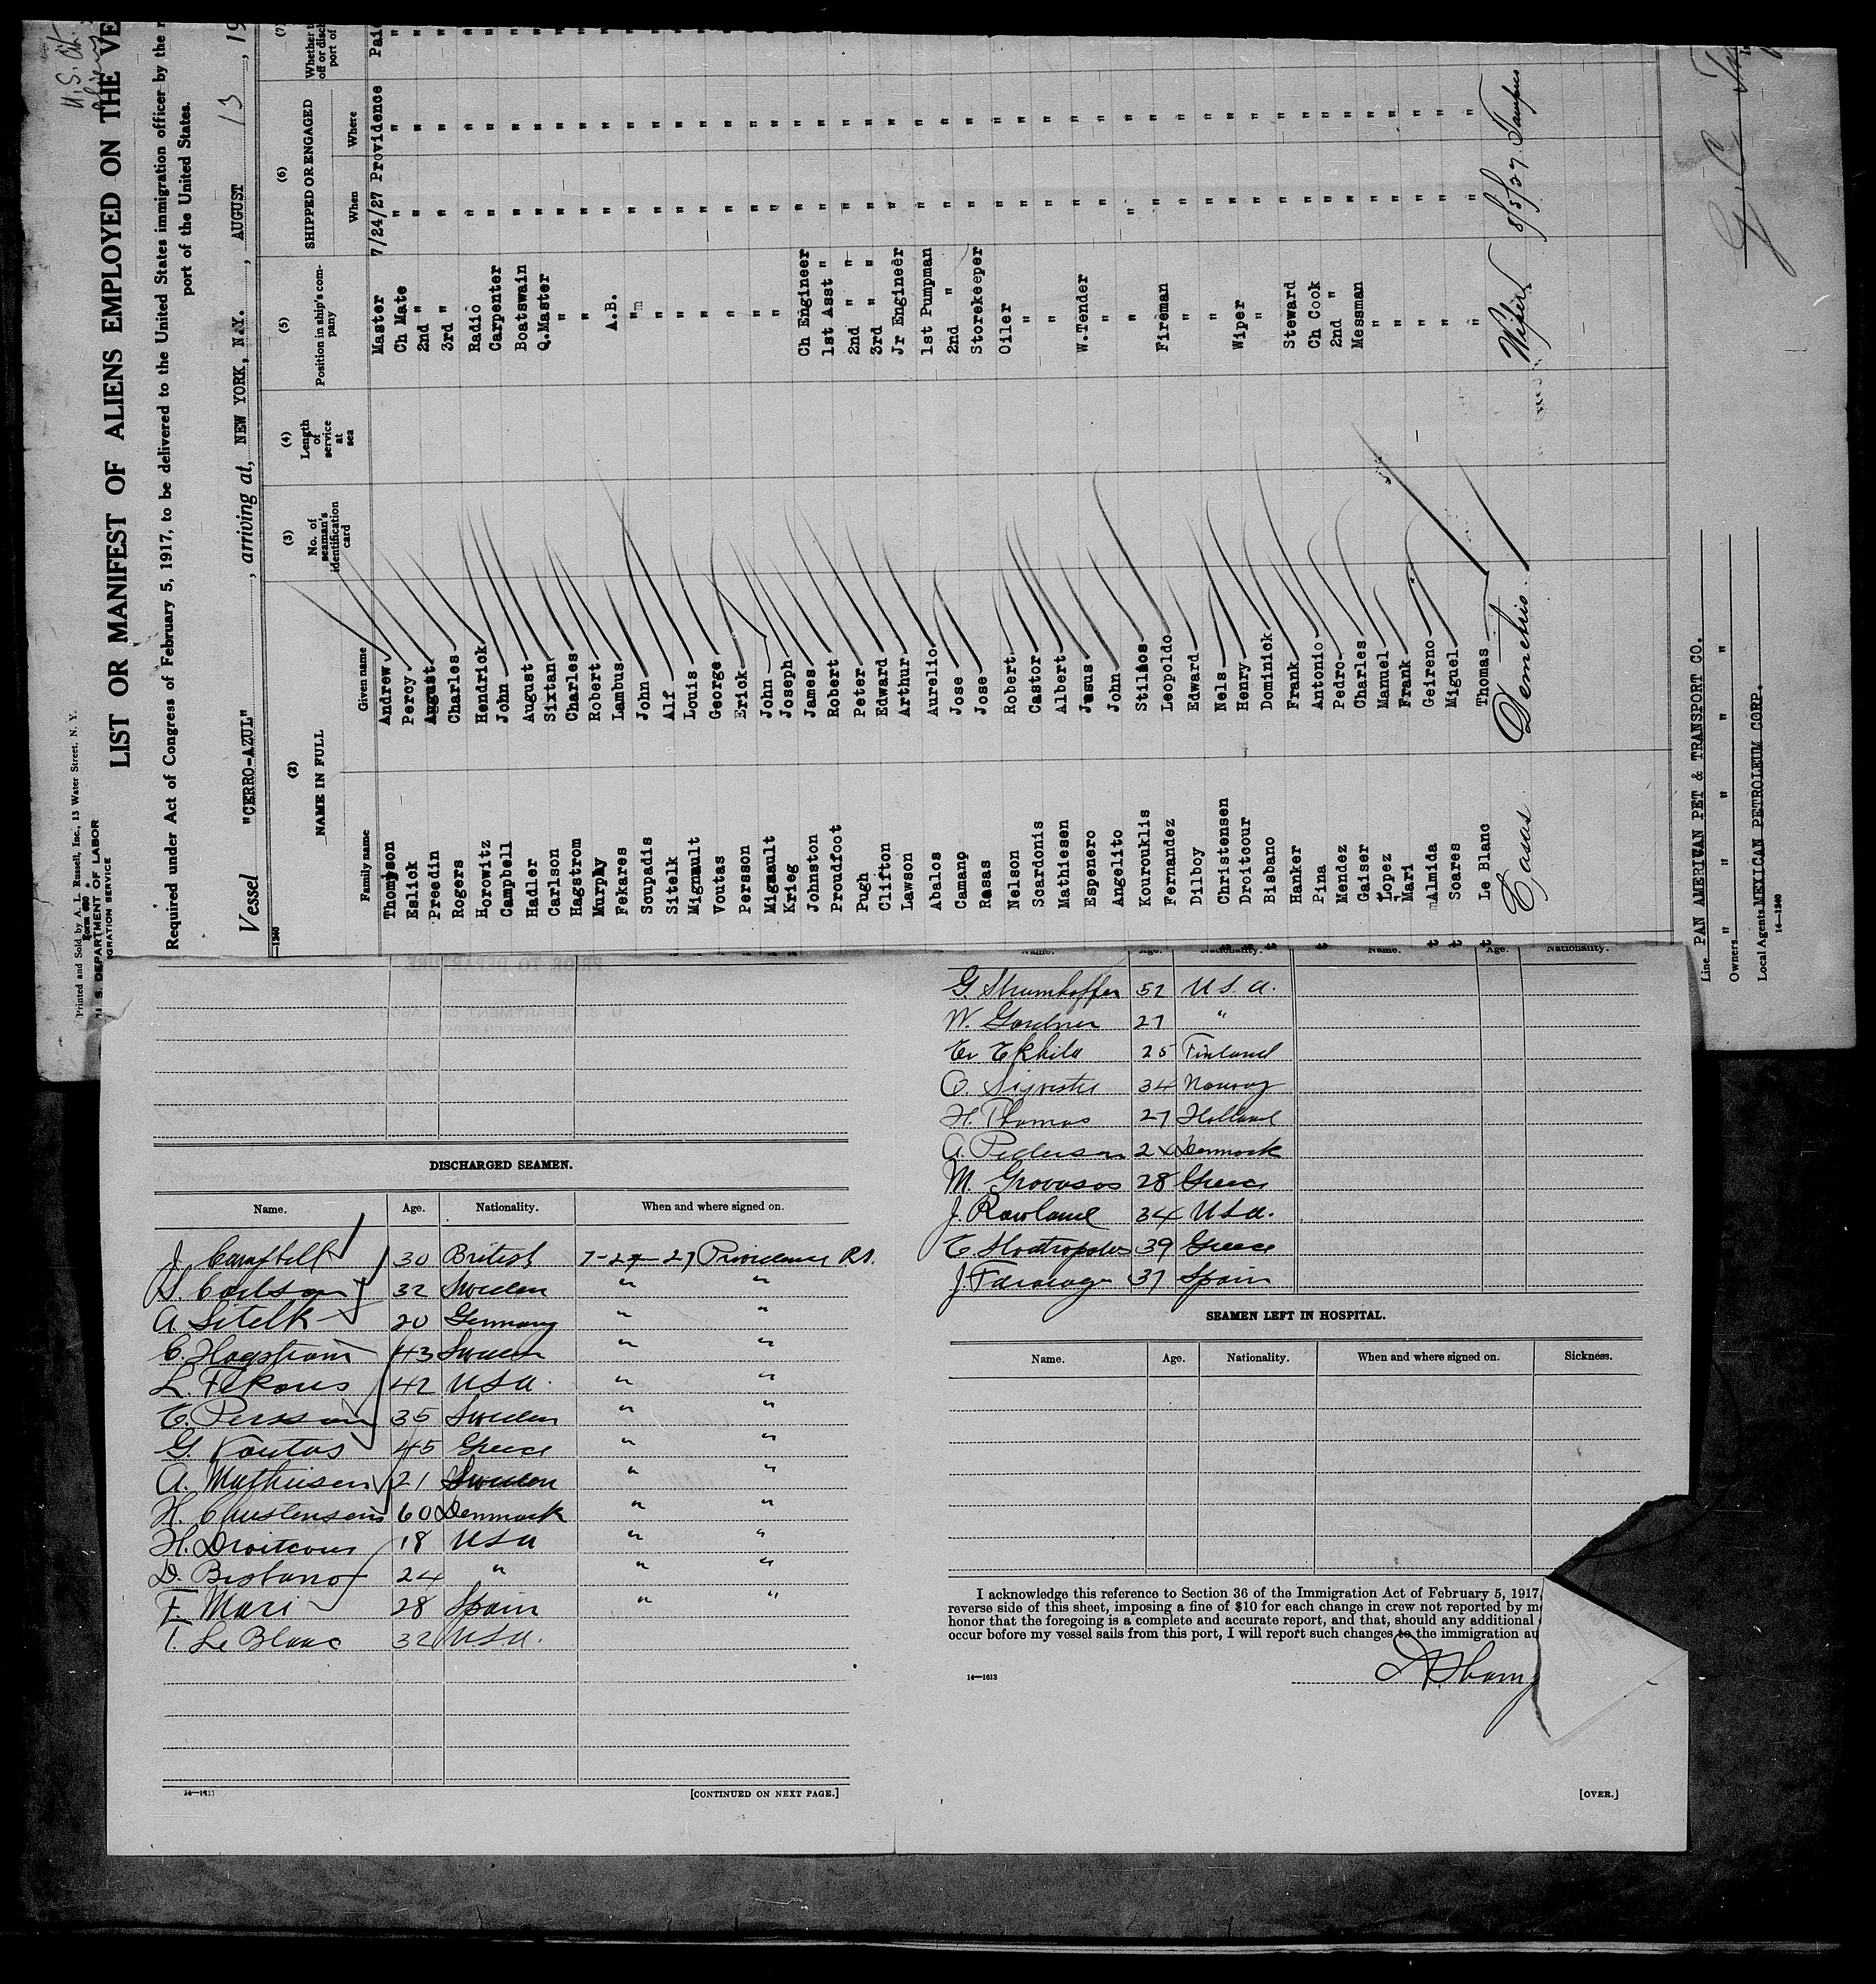 U.S. Cit.
Aliens
Printed and Sold by A. L. Russell, Inc., 13 Water Street, N. Y.
Form 680
U. S. DEPARTMENT OF LABOR
IMMIGRATION SERVICE
LIST OR MANIFEST OF ALIENS EMPLOYED ON THE VE
Required under Act of Congress of February 5, 1917, to be delivered to the United States immigration officer by the
port of the United States.
Vessel "CERRO-AZUL", arriving at, NEW YORK, N.Y., AUGUST 13, 19
14—1240
(2) (3) (4) (5) (6) (7)
NAME IN FULL No. of seaman's identification card Length of service at sea Position in ship's company SHIPPED OR ENGAGED
Family name Given name When Where
Thompson Andrew Master 7/24/27 Providence Paid
Eslick Percy Ch Mate " " "
Preedin August 2nd " " " "
Rogers Charles 3rd " " " "
Horowitz Hendrick Radio " " "
Campbell John Carpenter " " "
Hadler August Boatswain " " "
Carlson Sixtan Q.Master " " "
Hagstrom Charles " " " "
Murphy Robert " " " "
Fekares Lambus A.B. " " "
Scupadis John " " " "
Sitelk Alf " " " "
Mignault Louis " " " "
Voutas George " " " "
Persson Erick " " " "
Mignault John " " " "
Krieg Joseph " " " "
Johnston James Ch Engineer " " "
Proudfoot Robert 1st Asst " " " "
Pugh Peter 2nd " " " " "
Clifton Edward 3rd " " " " "
Lawson Arthur Jr Engineer " " "
Abalos Aurelio 1st Pumpman " " "
Camano Jose 2nd " " " "
Rasas Jose Storekeeper " " "
Nelson Robert Oiler " " "
Scardonis Castor " " " "
Mathiesen Albert " " " "
Espenero Jesus W.Tender " " "
Angelito John " " " "
Kourouklis Stilios " " " "
Fernandez Leopoldo Fireman " " "
Dilboy Edward " " " "
Christensen Nels " " " "
Droitcour Henry Wiper " " "
Bisbano Dominick " " " "
Hanker Frank Steward " " "
Pina Antonio Ch Cook " " "
Mendez Pedro 2nd " " " "
Gaiser Charles Messman " " "
Lopez Manuel " " " "
Mari Frank " " " "
Almida Geireno " " " "
Soares Miguel " " " "
Le Blanc Thomas " " " "
Casas Demetrio Wiper 8/5/27 Tampico
Line PAN AMERICAN PET & TRANSPORT CO.
Owners " " " " "
Local Agents MEXICAN PETROLEUM CORP.
14—1240
DISCHARGED SEAMEN.
Name. Age. Nationality. When and where signed on.
J. Campbell 30 British 7-24-27 Providence R.I.
S. Carlson 32 Sweden " "
A. Sitelk 20 Germany " "
C. Hagstrom 43 Sweden " "
L. Fekares 42 USA. " "
E. Persson 35 Sweden " "
G. Voutas 45 Greece " "
A. Mathiesen 21 Sweden " "
H. Christensen 60 Denmark " "
H. Droitcour 18 USA " "
D. Bisbano 24 " " "
F. Mari 28 Spain " "
T. Le Blanc 32 USA.
[CONTINUED ON NEXT PAGE.]
Name. Age. Nationality. Name. Age. Nationality.
G. Strumhoffer 52 USA.
W. Gardner 27 "
Ekhila 25 Finland
O. 34 Norway
H. Thomas 27 Holland
A. Pedersen Denmark
M. Grovasos 28 Greece
J. Rowland 34 USA.
39 Greece
J. 37 Spain
SEAMEN LEFT IN HOSPITAL.
Name. Age. Nationality. When and where signed on. Sickness.
I acknowledge this reference to Section 36 of the Immigration Act of February 5, 1917,
reverse side of this sheet, imposing a fine of $10 for each change in crew not reported by m
honor that the foregoing is a complete and accurate report, and that, should any additional
occur before my vessel sails from this port, I will report such changes to the immigration au
14—1613
[OVER.]